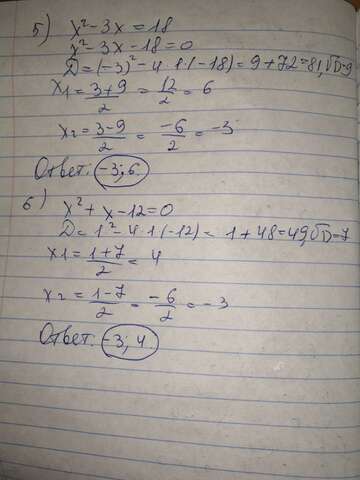 5) x²-3x=18
x²-3x-18=0
D=(-3)²-4·1·(-18)=9+72=81, √D=9
x1=3+9/2=12/2=6
x2=3-9/2=-6/2=-3
Ответ: -3; 6.
6) x²+x-12=0
D=1²-4·1·(-12)=1+48=49, √D=7
x1=1+7/2=4
x2=1-7/2=-6/2=-3
Ответ: -3; 4.